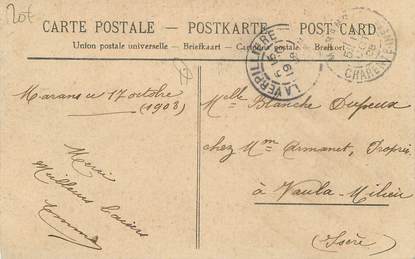 20€
CARTE POSTALE — POSTKARTE — POST CARD
Union postale universelle — Briefkaart — Cartolina postale — Brefkort
LAVERPILLIERE
CHARENTE
Marans le 17 octobre
(1908)
Merci
Meilleurs baisers
Melle Blanche Dupeux
chez Mme Armanet, Proprié
à Vaulx-Milieu
(Isère)